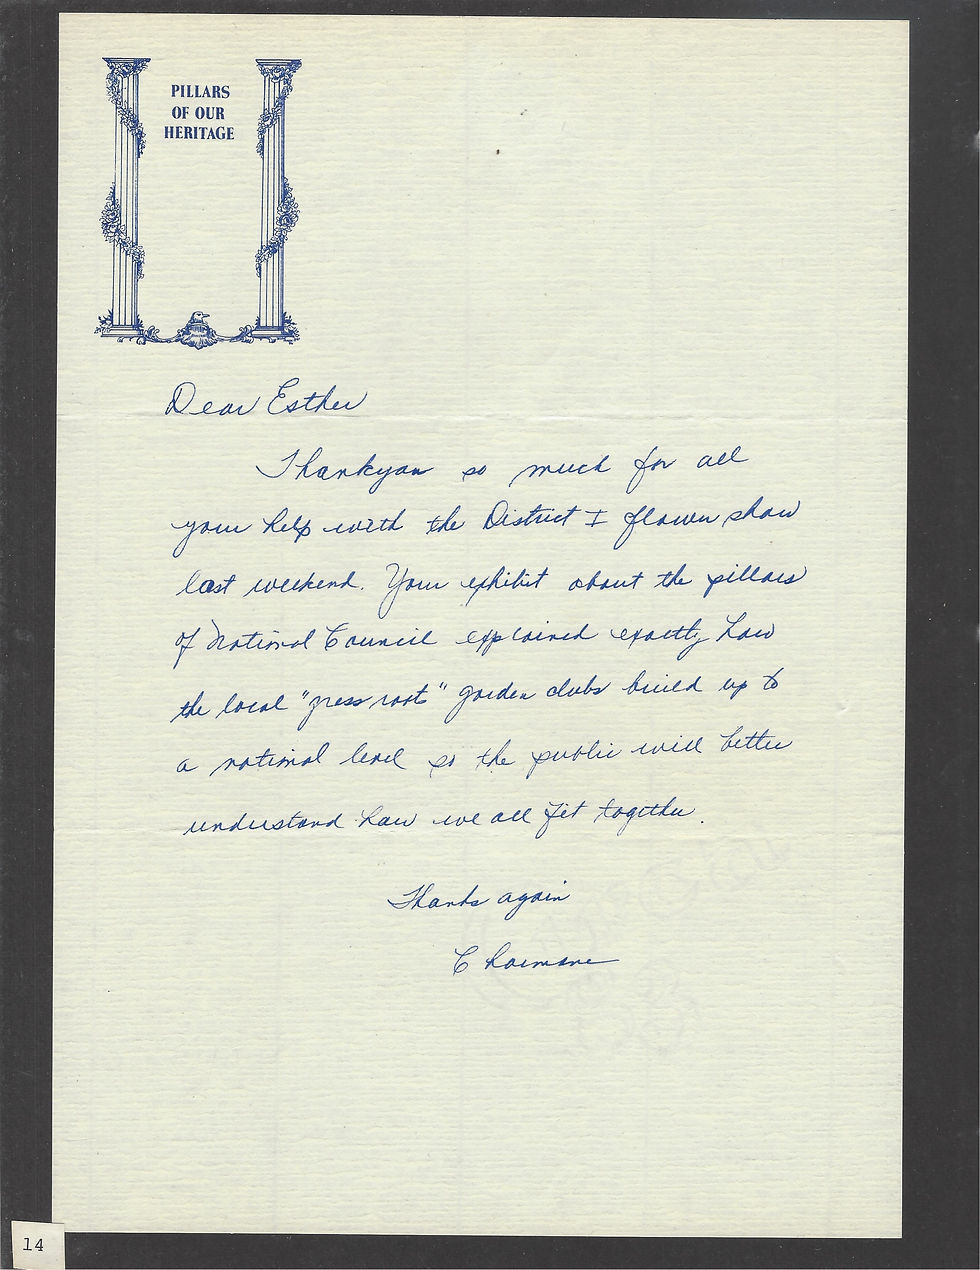 PILLARS
OF OUR
HERITAGE
Dear Esther
Thankyou so much for all
your help with the District I flower show
last weekend. Your exhibit about the pillars
of National Council explained exactly how
the local "grass roots" garden clubs build up to
a national level so the public will better
understand how we all fit together.
Thanks again
Charmane
14